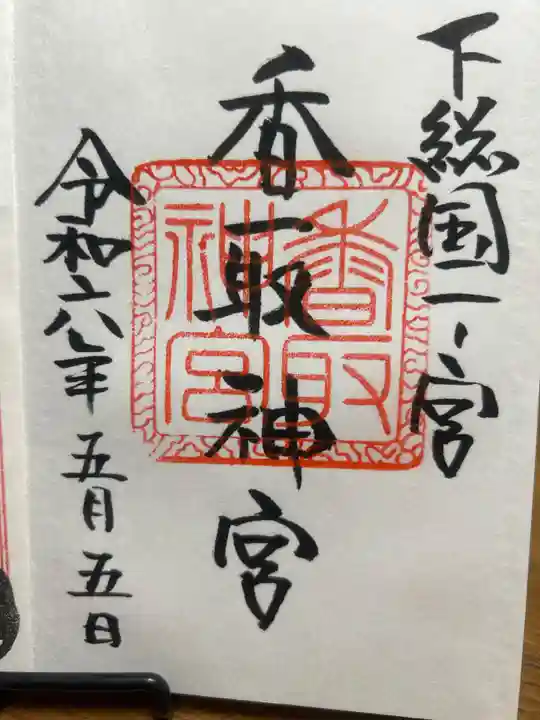 下総国一ノ宮
香取神宮
香取神宮
令和六年五月五日